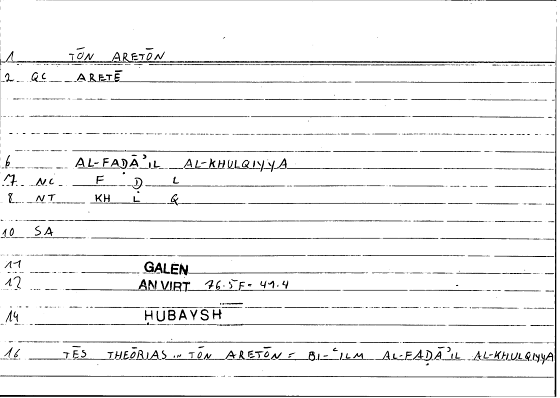 1 TŌN ARETŌN
2 QC ARETĒ
6 AL-FAḌĀʾIL AL-KHULQIYYA
7 NC F Ḍ L
8 NT KH L Q
10 SA
11 GALEN
12 AN VIRT 76.5F = 41.4
14 ḤUBAYSH
16 TĒS THEŌRIAS .. TŌN ARETŌN = BI-ʿILM AL-FAḌĀʾIL AL-KHULQIYYA